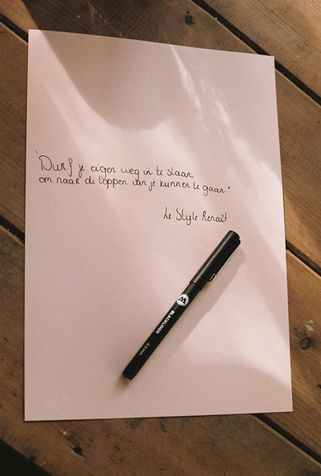 "Durf je eigen weg in te slaan
om naar de toppen van je kunnen te gaan"
Le Style Renaît
BLACKLINER